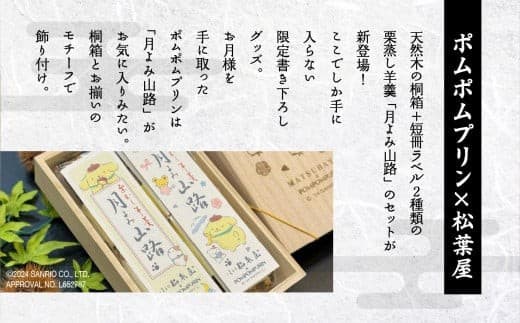 ポムポムプリン×松葉屋
天然木の桐箱＋短冊ラベル2種類の
栗蒸し羊羹「月よみ山路」のセットが
新登場！
ここでしか手に
入らない
限定書き下ろし
グッズ。
お月様を
手に取った
ポムポムプリンは
「月よみ山路」が
お気に入りみたい。
桐箱とお揃いの
モチーフで
飾り付け。
月よみ山路
松葉屋
POMPOMPURIN
月よみ山路
松葉屋
POMPOMPURIN
MATSUBAYA
POMPOMPURIN
©2024 SANRIO CO., LTD.
APPROVAL NO. L652767